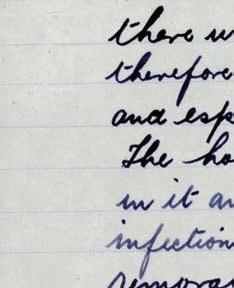 there w
therefore
and esp
The ho
in it an
infection